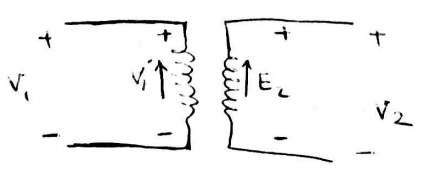 + + + +
V₁ V₁' E₂ V₂
− − − −